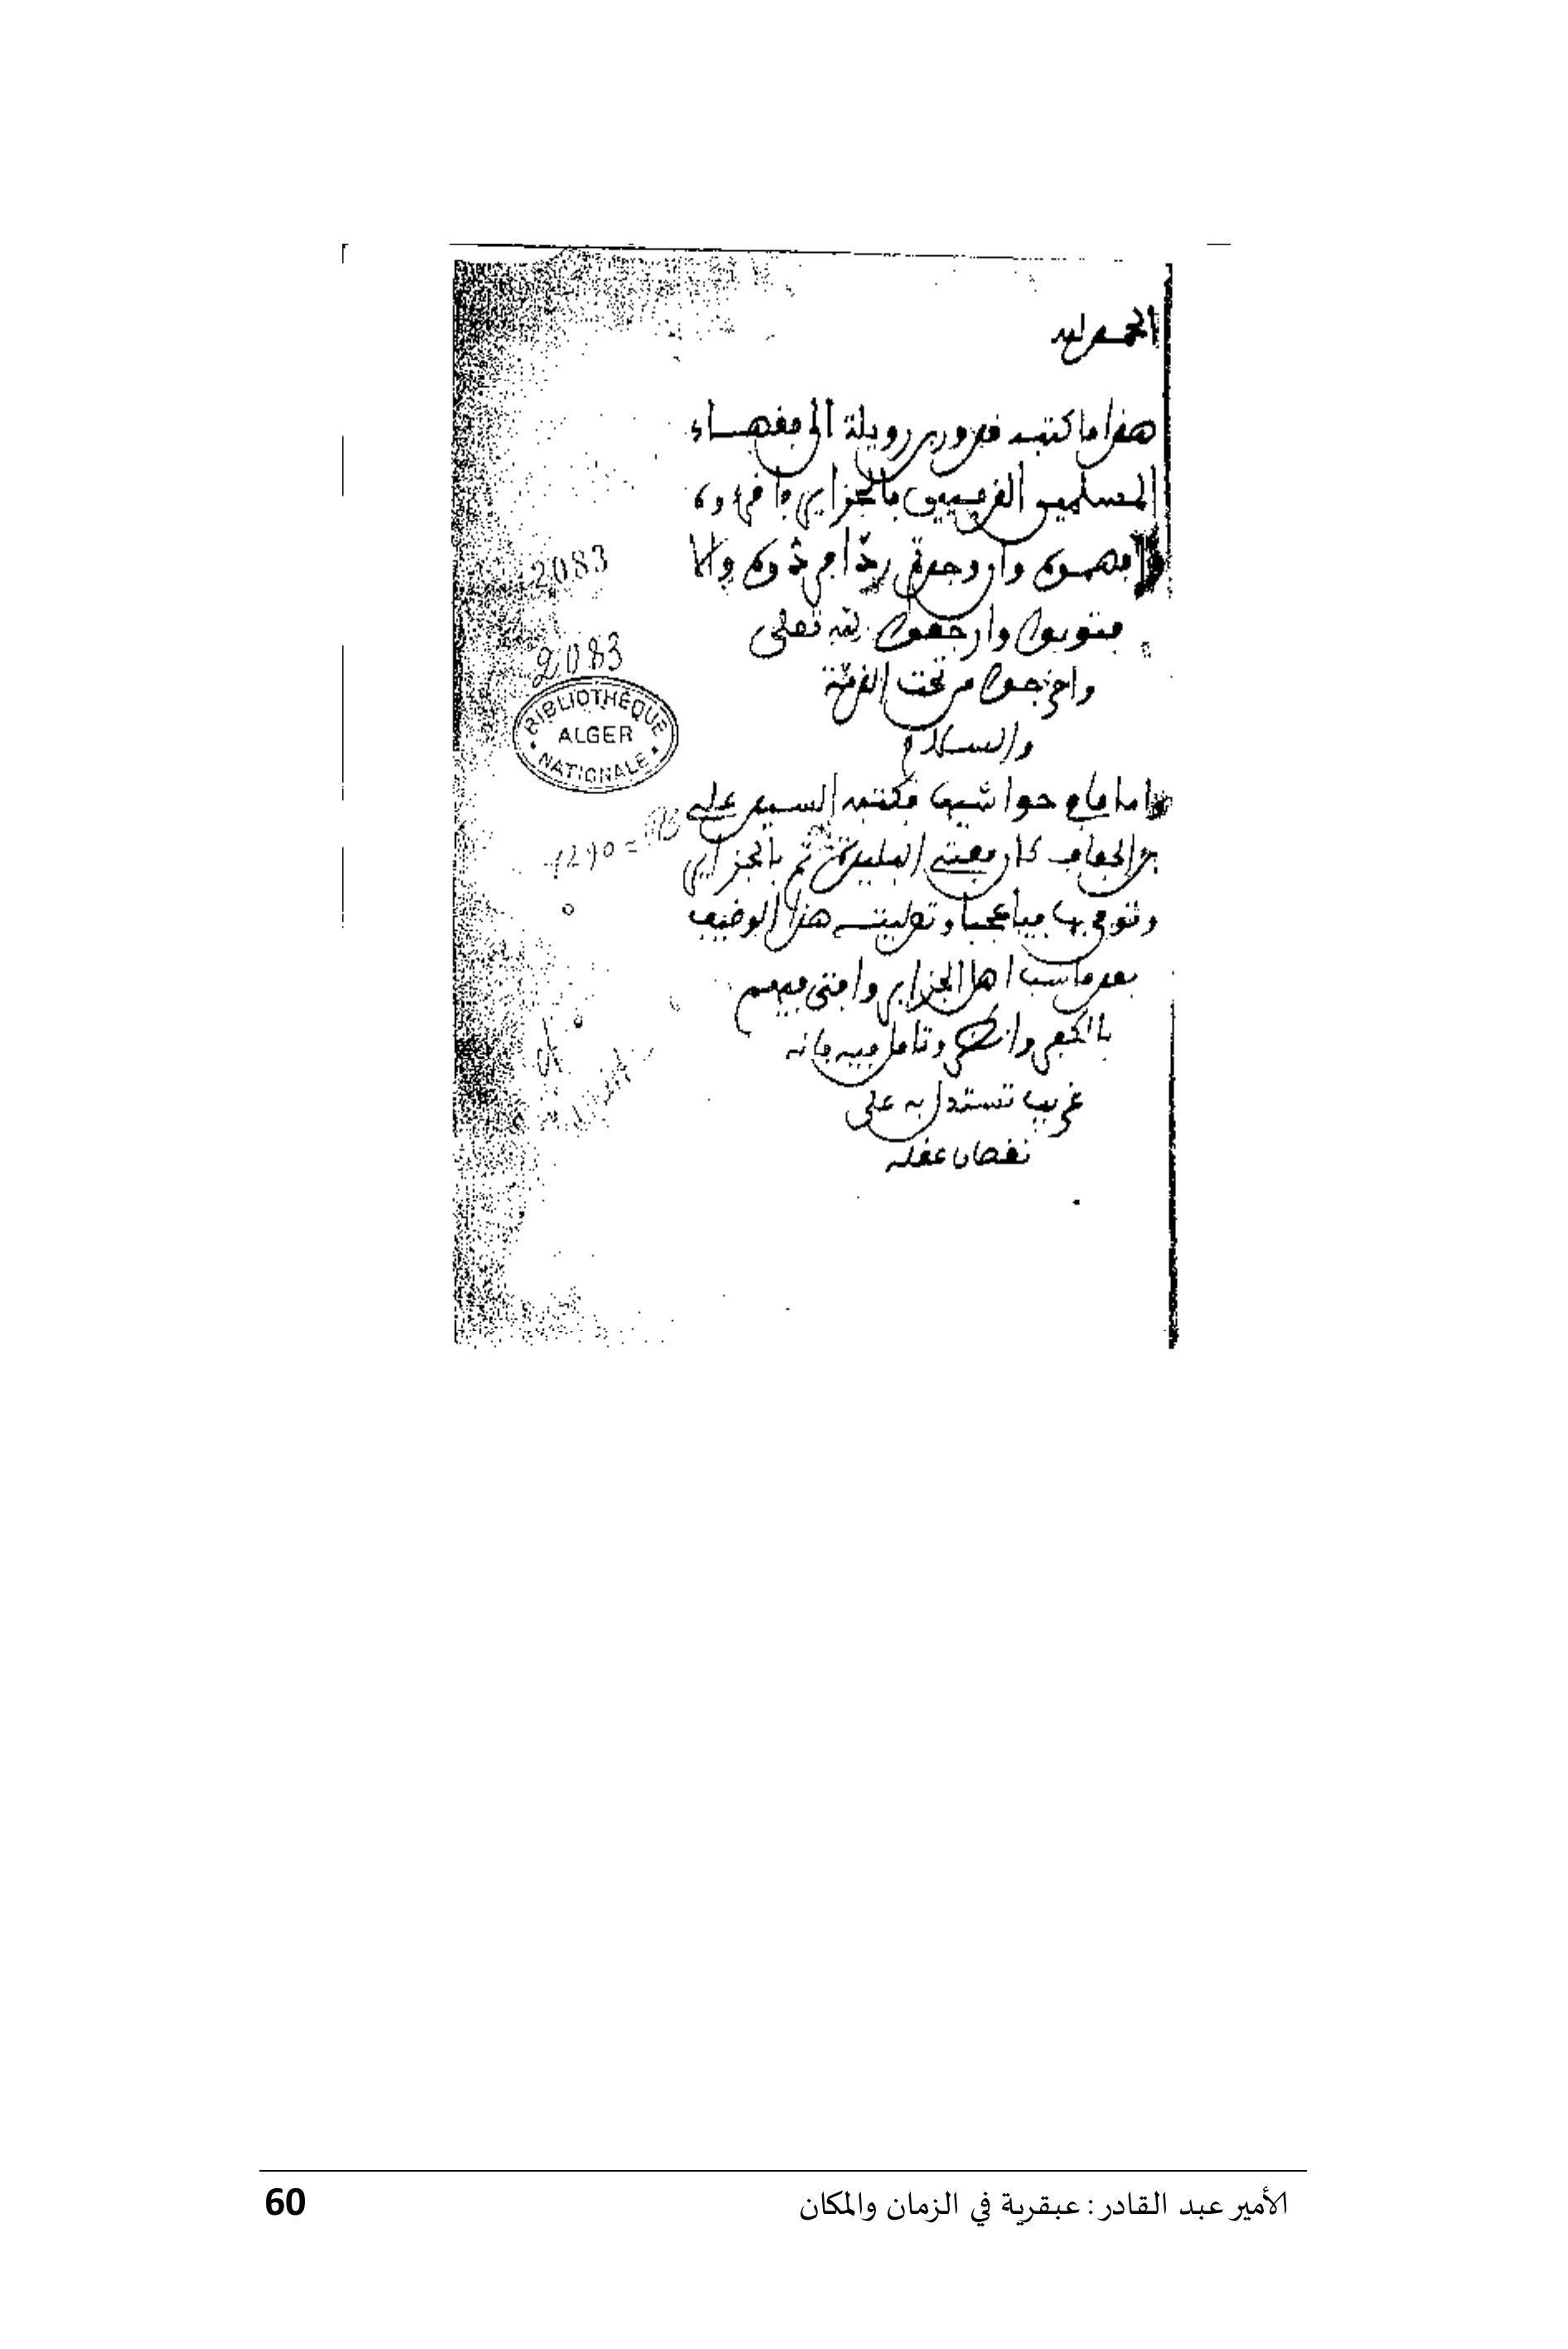 الحمد لله
هذا ما كتبه قدور بن رويلة الى فقهاء
المسلمين القريبين بالجزاير فاقرءوه
وافهموه وان وجدتم ردا فردوه والا
فتوبوا وارجعوا لله تعلى
واخرجوا من تحت الفرقة
والسلام
واما ما في حواشيها فكتبه السيد علي
بن الحفاف كان مفتي البليدة ثم بالجزاير
وتوفي بها
بعد ما سب اهل الجزاير وافتى فيهم
بالكفر وانظر وتامل فيه فانه
غريب تستدل به على
نقصان عقله
2083
2083
BIBLIOTHEQUE
ALGER
NATIONALE
1290 =
الأمير عبد القادر: عبقرية في الزمان والمكان
60